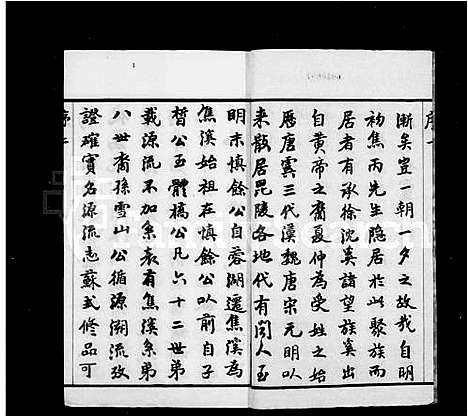 序一
漸矣豈一朝一夕之故哉自明
初焦丙先生隱居於此聚族而
居者有承徐沈奚諸望族奚出
自黃帝之裔夏仲為受姓之始
歷唐虞三代漢魏唐宋元明以
來散居毘陵各地代有聞人至
明末慎餘公自蓉湖遷焦溪為
焦溪始祖在慎餘公以前自子
皙公五體橋公凡六十二世第
載源流不加系表有焦溪系弟
八世裔孫雪山公循源溯流攷
證確實名源流志蘇式修品可
序二